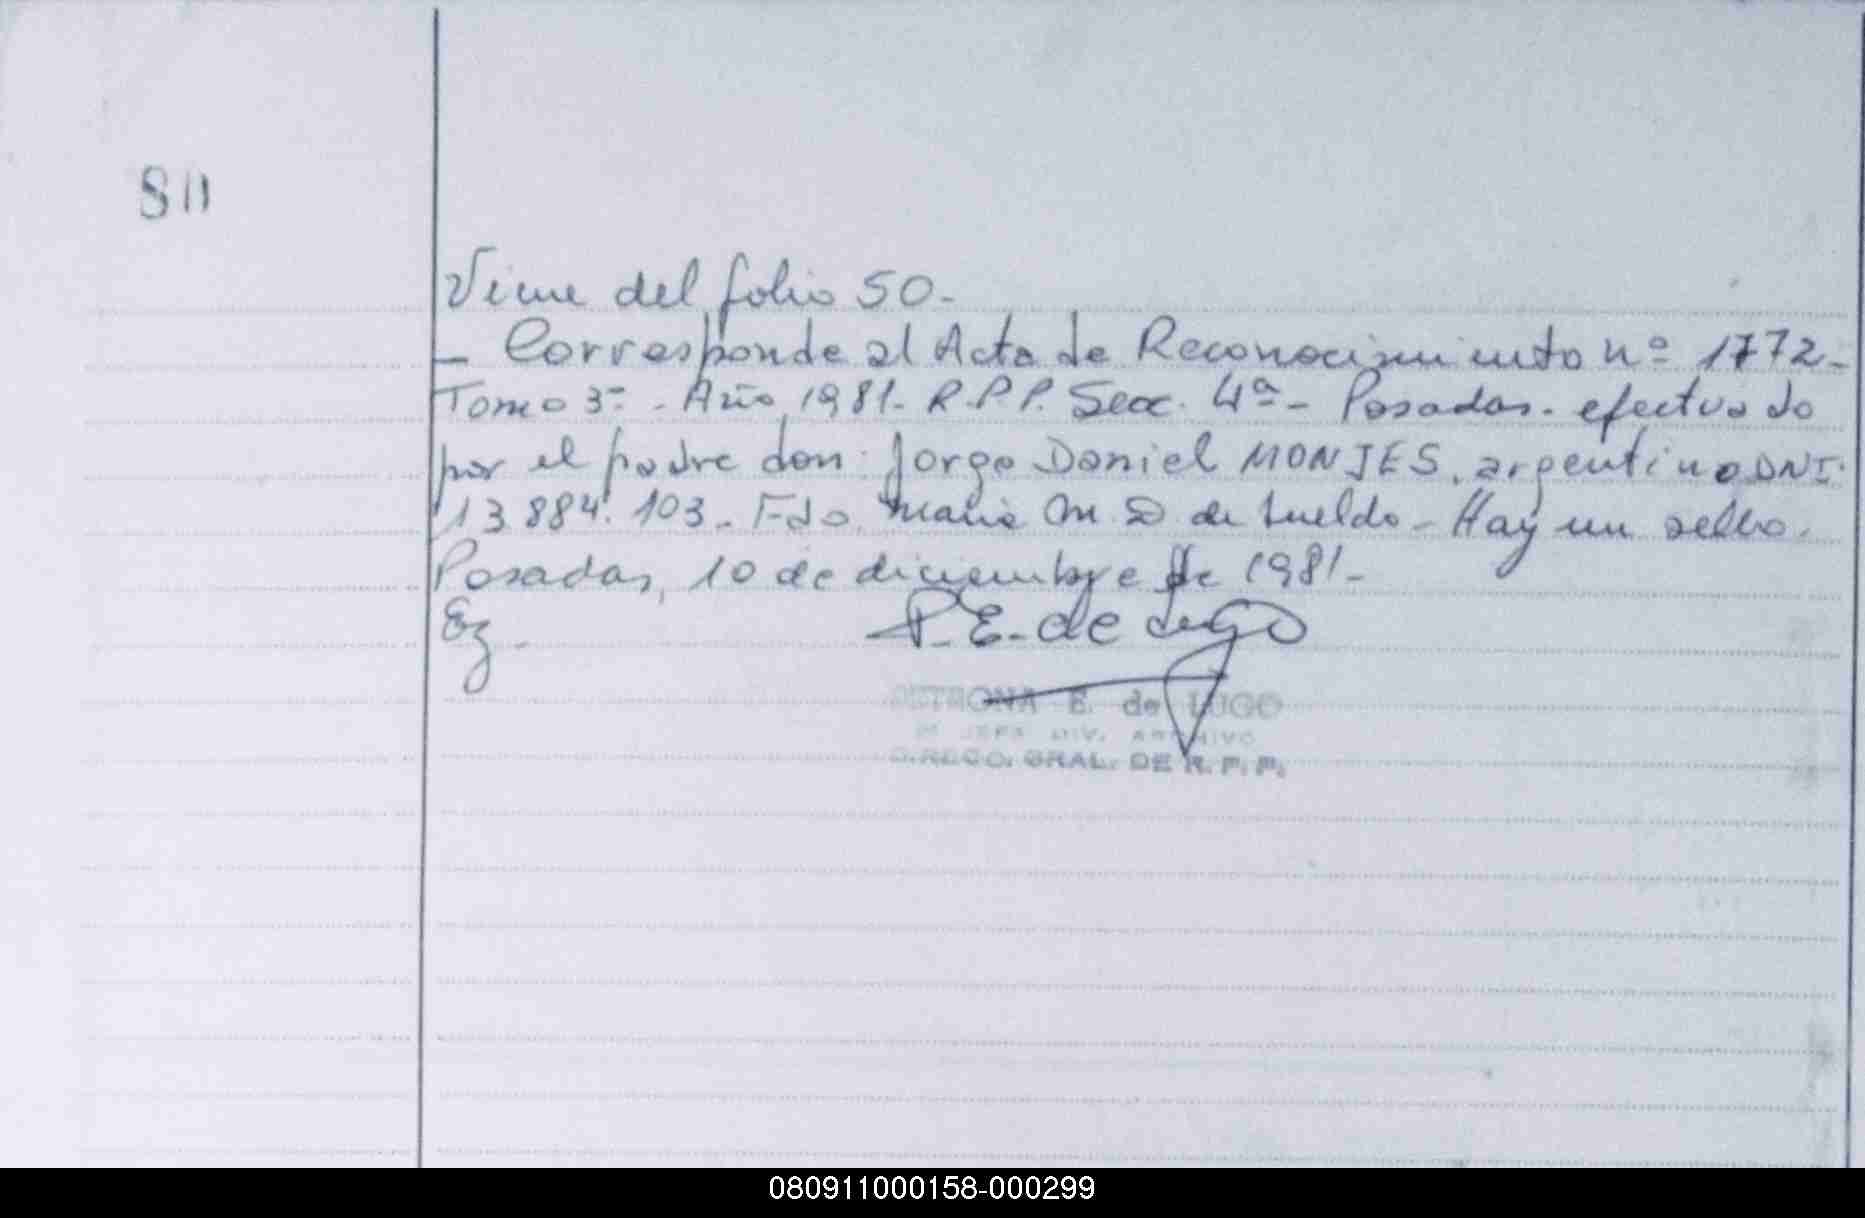 80
Viene del folio 50.-
- Corresponde al Acta de Reconocimiento nº 1772-
Tomo 3º.- Año 1981- R.P.P. Secc. 4ª- Posadas- efectuado
por el padre don: Jorge Daniel MONJES, argentino DNI.
13 884. 103.- Fdo. Maria M. D de Sueldo - Hay un sello.
Posadas, 10 de diciembre de 1981-
Ez.
P. E. de Lugo
PETRONA E. de LUGO
JEFA DIV. ARCHIVO
DIRECC. GRAL. DE R. P. P.
080911000158-000299